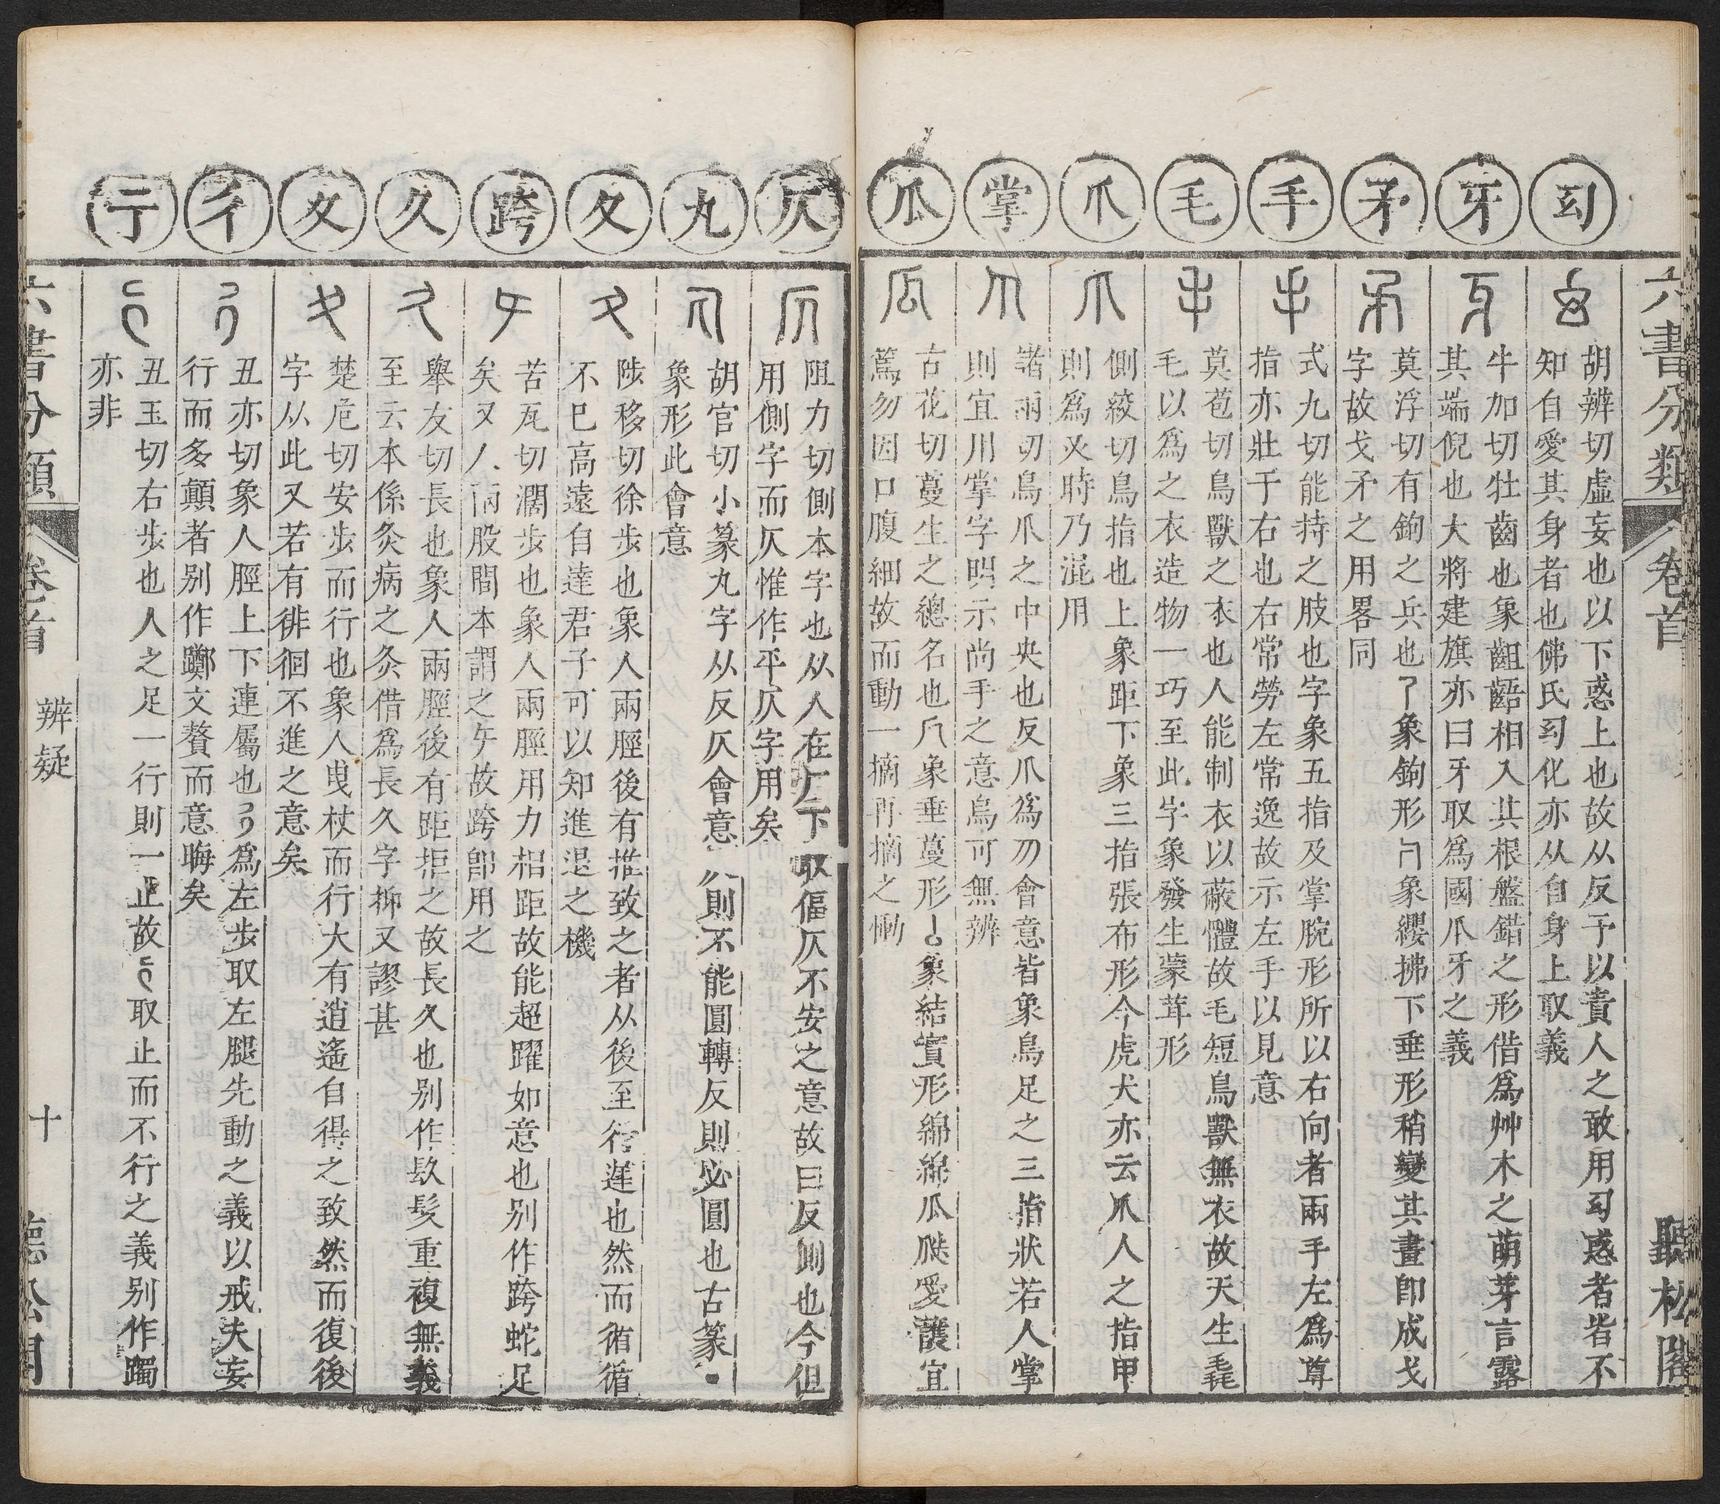 六書分類
卷首
聽松閣
幻
胡辨切虛妄也以下惑上也故从反予以責人之敢用幻惑者皆不
知自愛其身者也佛氏幻化亦从自身上取義
牙
牛加切牡齒也象齟齬相入其根盤錯之形借為艸木之萌芽言露
其端倪也大將建旗亦曰牙取為國爪牙之義
矛
莫浮切有鉤之兵也象鉤形象纓拂下垂形稍變其畫卽成戈
字故戈矛之用畧同
手
式九切能持之肢也字象五指及掌腕形所以右向者兩手左為尊
指亦壯于右也右常勞左常逸故示左手以見意
毛
莫苞切鳥獸之衣也人能制衣以蔽體故毛短鳥獸無衣故天生毳
毛以為之衣造物一巧至此字象發生蒙茸形
爪
側絞切鳥指也上象距下象三指張布形今虎犬亦云爪人之指甲
則為叉時乃混用
掌
諸兩切鳥爪之中央也反爪為𠃨會意皆象鳥足之三指狀若人掌
則宜用掌字明示尚手之意烏可無辨
瓜
古花切蔓生之總名也象垂蔓形象結實形綿綿瓜瓞愛護宜
篤勿因口腹細故而動一摘再摘之慟
仄
阻力切側本字也从人在厂下取傴仄不安之意故曰反側也今但
用側字而仄惟作平仄字用矣
丸
胡官切小篆丸字从反仄會意仄則不能圓轉反則必圓也古篆
象形此會意
夊
陟移切徐步也象人兩脛後有推致之者从後至行遲也然而循循
不已高遠自達君子可以知進退之機
跨
苦瓦切濶步也象人兩脛用力相距故能超躍如意也别作跨蛇足
矣又人兩股間本謂之㐄故跨卽用之
久
舉友切長也象人兩脛後有距拒之故長久也别作镹髣重復無義
至云本係灸病之灸借為長久字抑又謬甚
夂
楚危切安步而行也象人曳杖而行大有逍遙自得之致然而復後
字从此又若有徘徊不進之意矣
彳
丑亦切象人脛上下連屬也彳為左步取左腿先動之義以戒夫妄
行而多顛者别作躑文贅而意晦矣
亍
丑玉切右步也人之足一行則一止故亍取止而不行之義别作躅
亦非
六書分類
卷首
辨疑
十
聽松閣